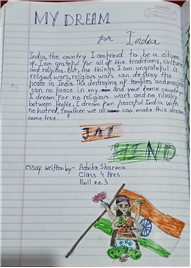 MY DREAM
for India
India, the country I am proud to be a citizen
of. I am grateful for all of the traditions, culture
and religions. But the thinks I am ungrateful is
religious wars, religious wars can destroy the
peace in India. The destroying of temples and
can no peace in my and your home country
I dream for no religious wars and no rivalry
between people, I dream for peaceful India with
no hatred, together we all can make this dream
come true.
JAI
HIND
essay written by:- Advita Sharma
Class 4 Pres.
Roll no. 3